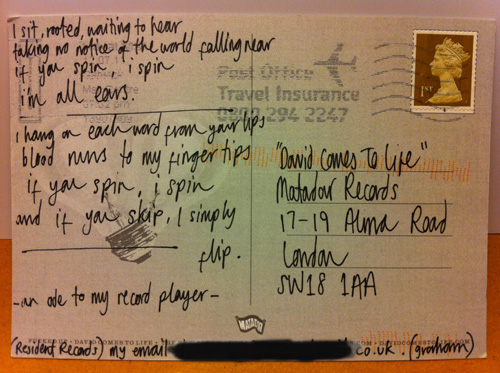 I sit, rooted, waiting to hear
taking no notice of the world falling near
if you spin, i spin
i'm all ears.
i hang on each word from your lips
blood runs to my finger tips
if you spin, i spin
and if you skip, I simply
flip.
-an ode to my record player-
Post Office
Travel Insurance
0800 294 2247
1ST
"David Comes To Life"
Matador Records
17-19 Alma Road
London
SW18 1AA
MATADOR
DAVID COMES TO LIFE
(Resident Records) my email
co.uk. (graham)